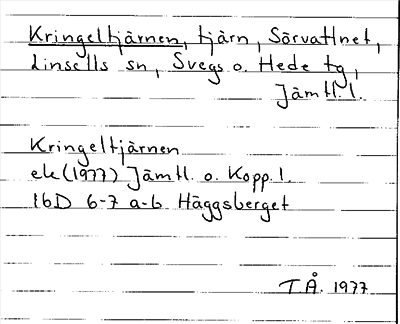 Kringeltjärnen, tjärn, Sörvattnet,
Linsells sn, Svegs o. Hede tg,
Jämtl. l.
Kringeltjärnen
ek (1977) Jämtl. o. Kopp. l.
16D 6-7 a-b Häggsberget
T Å. 1977